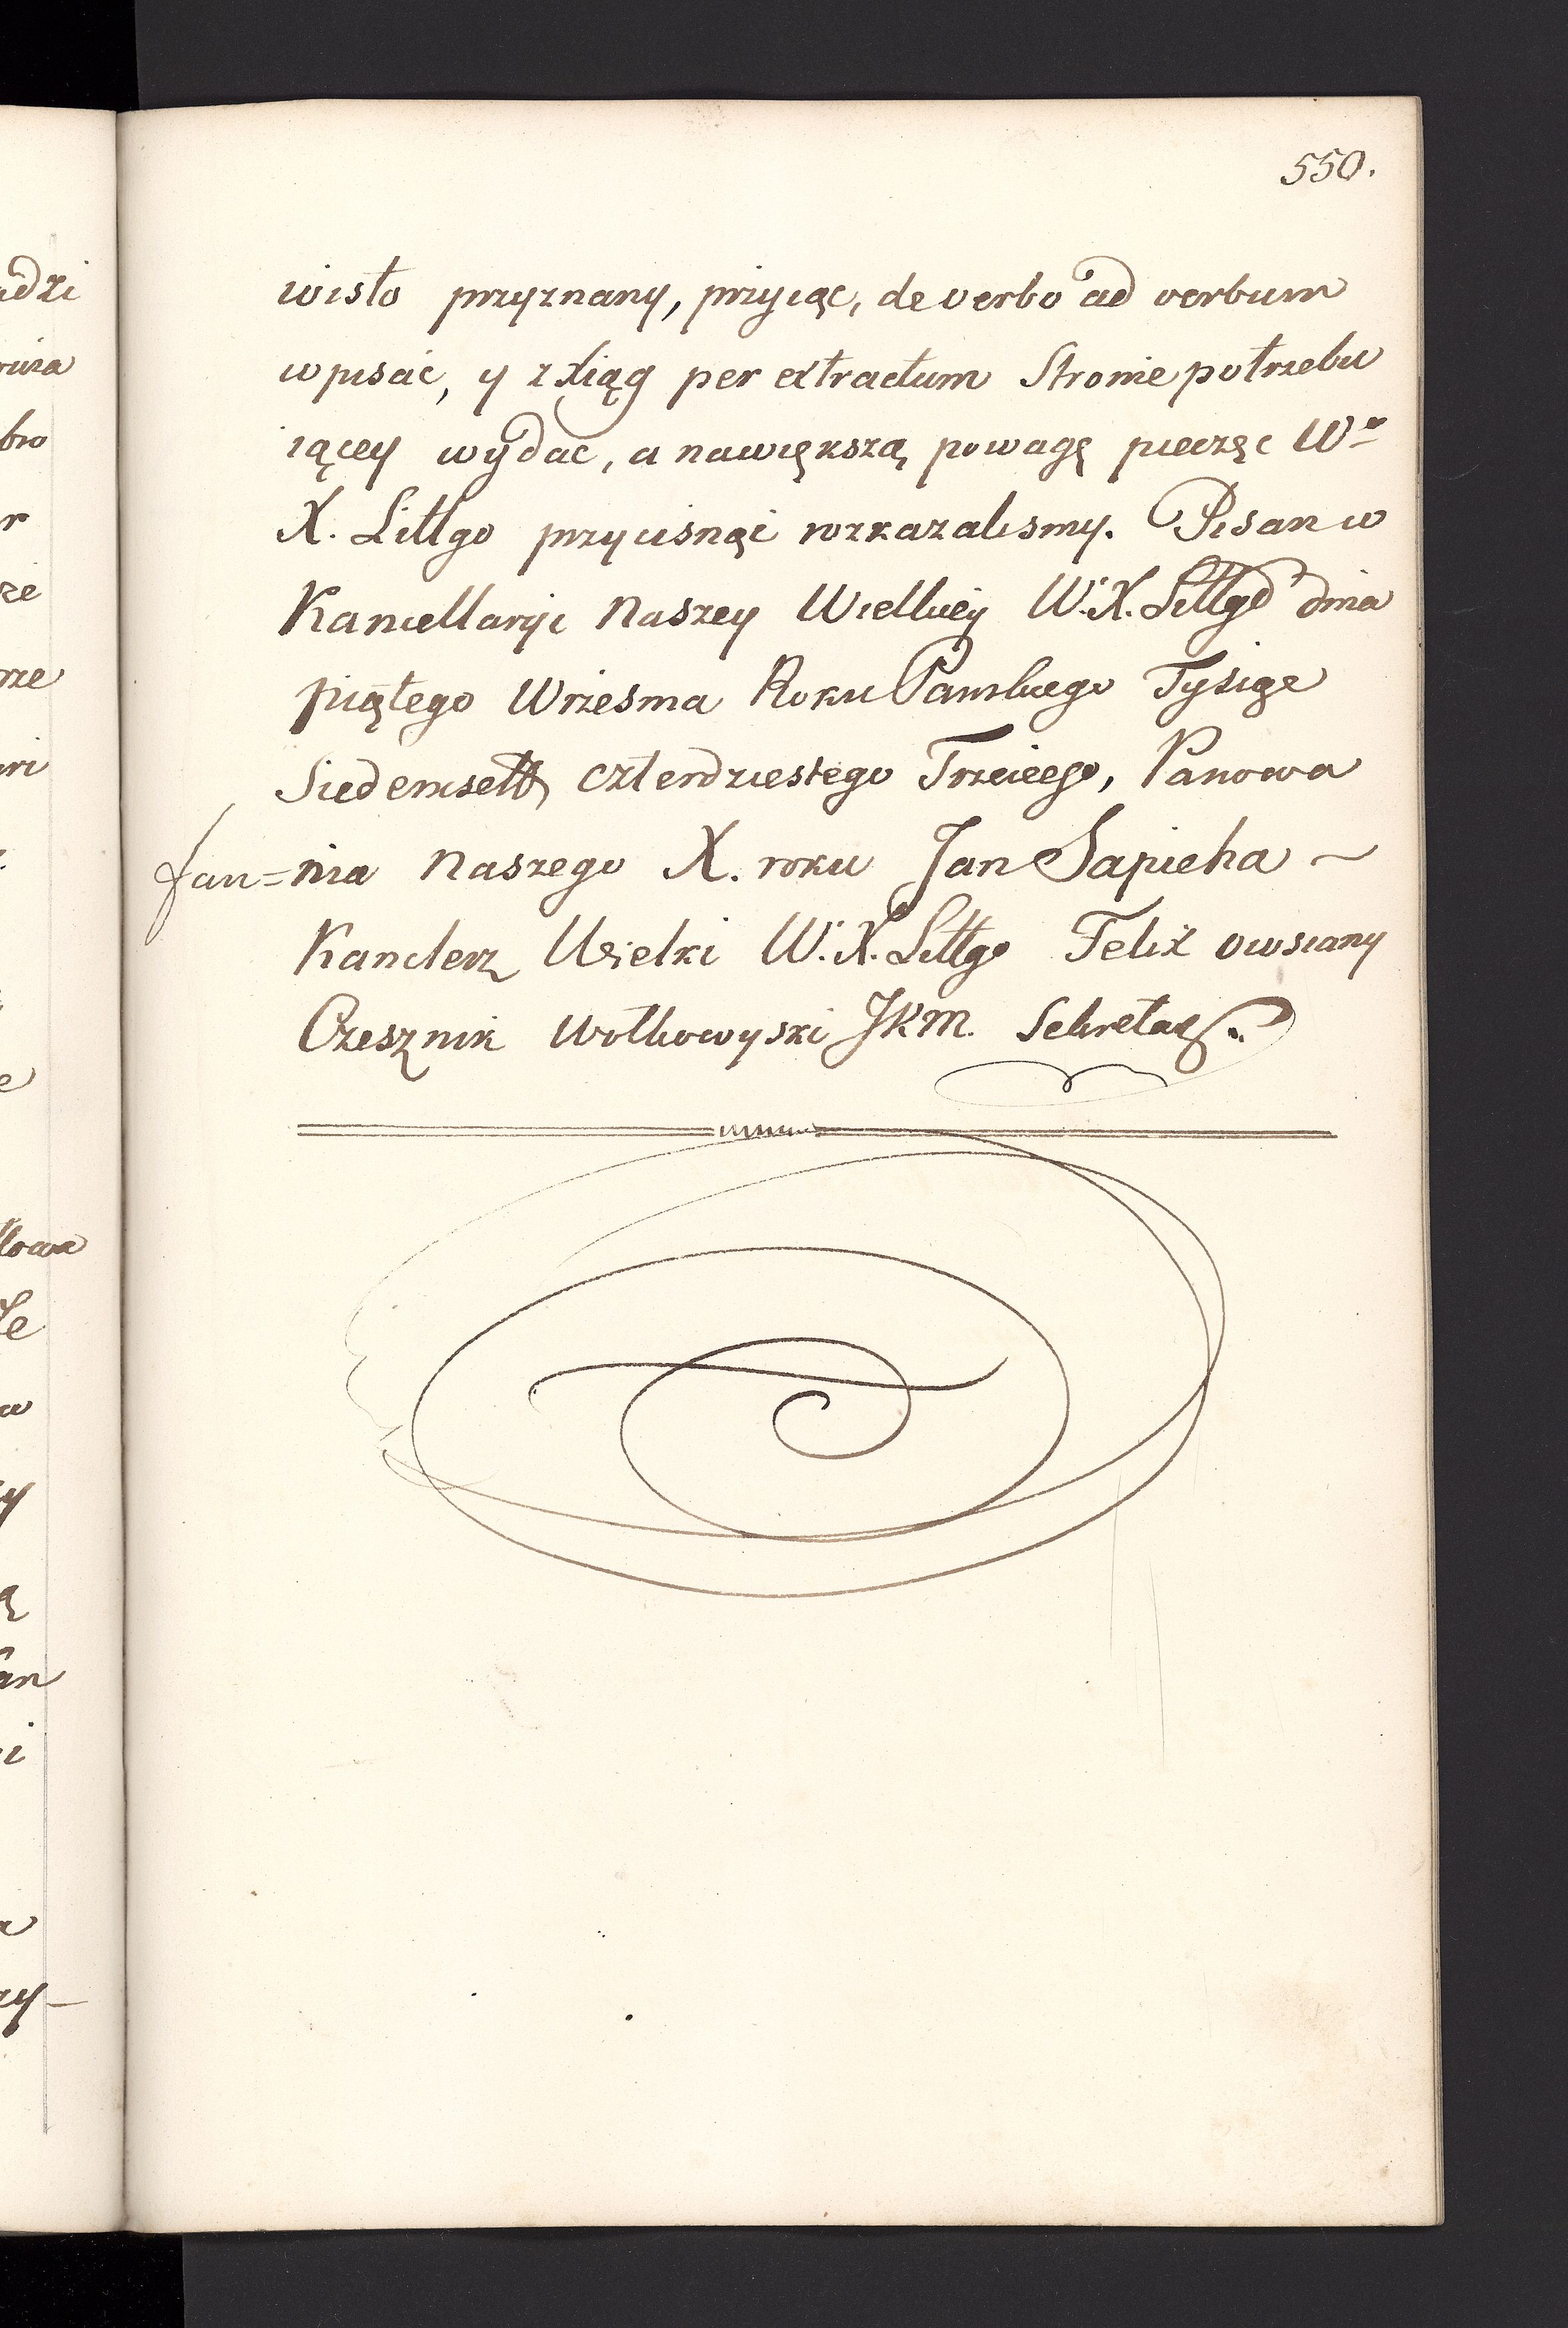 550.
wisto przyznany, przyiąc, de verbo ad verbum
wpisać, y z Xiąg per extractum Stronie potrzebu
iącey wydac, a nawiększą powagę pieczęc Wo
X. Littgo przycisnąć rozkazalismy. Pisan w
Kancellaryi Naszey Wielkiey W. X. Littgo dnia
piątego Wrzesnia Roku Panskiego Tysiąc
Siedemsett czterdziestego Trzeciego, Panowa
nia Naszego X. roku Jan Sapieha ~
Kanclerz Wielki W. X. Littgo Felix owsiany
Czesznik Wołkowyski JKM. Sekretarz